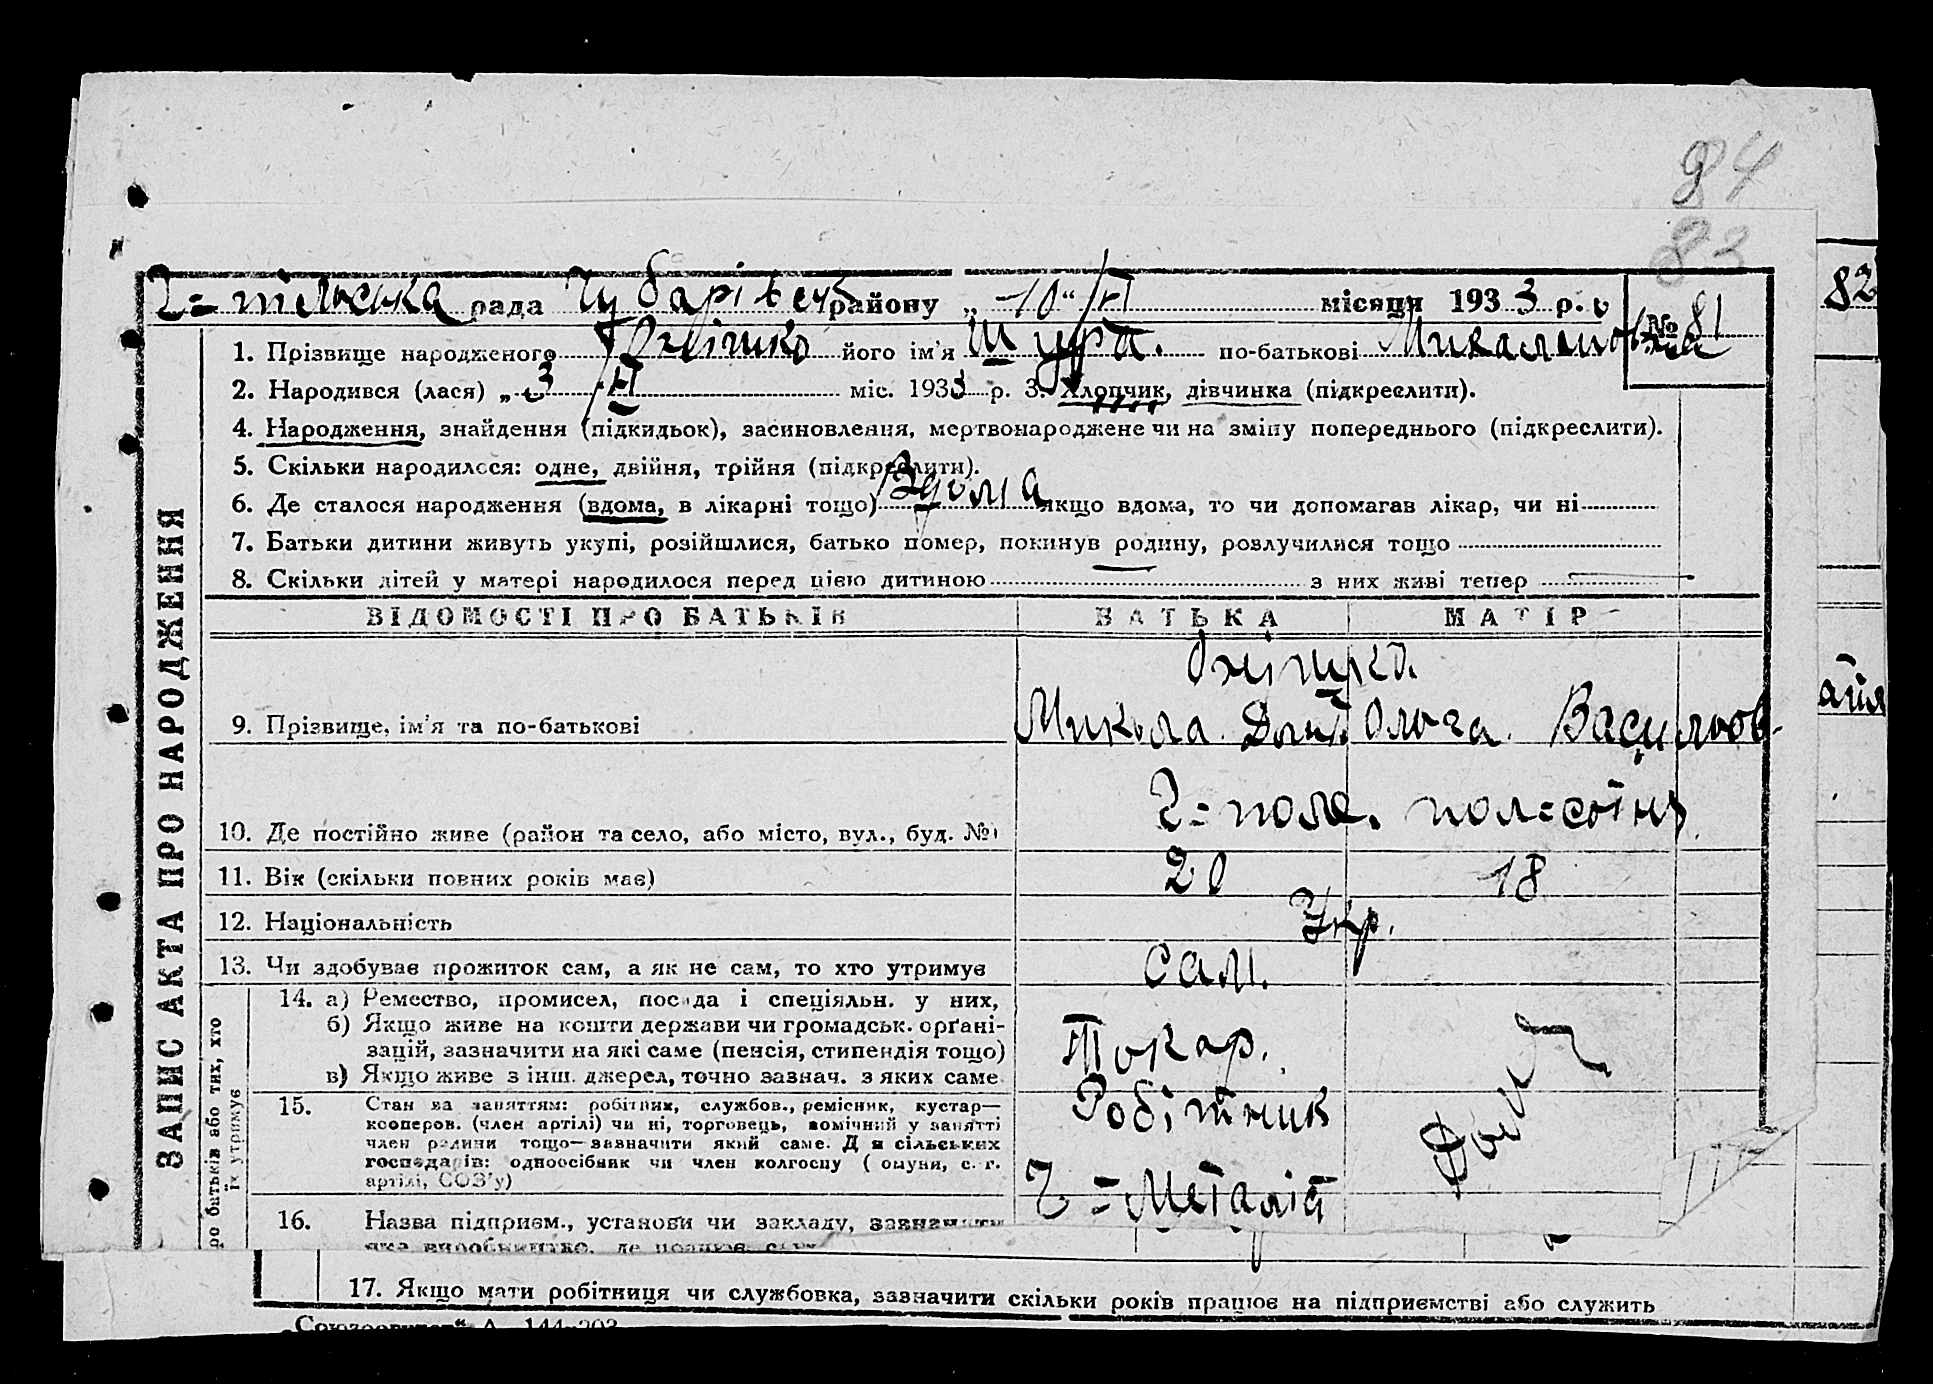 84
83
Г=пільська рада Чубарівськ району „10“ VI місяця 1933 р.
№ 81
82
1. Прізвище народженого Оніпко його ім'я Шура. по-батькові Микалаиовна
2. Народився (лася) „3 VI міс. 1933 р. 3. Хлопчик, дівчинка (підкреслити).
4. Народження, знайдення (підкидьок), засиновлення, мертвонароджене чи на зміну попереднього (підкреслити).
5. Скільки народилося: одне, двійня, трійня (підкреслити).
6. Де сталося народження (вдома, в лікарні тощо) Вдома якщо вдома, то чи допомагав лікар, чи ні
7. Батьки дитини живуть укупі, розійшлися, батько помер, покинув родину, розлучилися тощо
8. Скільки дітей у матері народилося перед цією дитиною з них живі тепер
ВІДОМОСТІ ПРО БАТЬКІВ БАТЬКА МАТІР
Оніпко.
9. Прізвище, ім'я та по-батькові Микола Ольга Васильов
10. Де постійно живе (район та село, або місто, вул., буд. №)
11. Вік (скільки повних років має) 20 18
12. Національність Укр.
13. Чи здобуває прожиток сам, а як не сам, то хто утримує сам.
14. а) Ремество, промисел, посада і спеціяльн. у них,
б) Якщо живе на кошти держави чи громадськ. орґані-
зацій, зазначити на які саме (пенсія, стипендія тощо)
в) Якщо живе з інш. джерел, точно зазнач. з яких саме
Токар.
15. Стан за заняттям: робітник, службов., ремісник, кустар—
кооперов. (член артілі) чи ні, торговець, помічний у занятті
член родини тощо—зазначити який саме. Для сільських
господарів: одноосібник чи член колгоспу (комуни, с.-г.
артілі, СОЗ'у)
Робітник
16. Назва підприєм., установи чи закладу, зазначити
яке виробництво, де працює,
Металіст
17. Якщо мати робітниця чи службовка, зазначити скільки років працює на підприємстві або служить
ЗАПИС АКТА ПРО НАРОДЖЕННЯ
ро батьків або тих, хто
їх утримує